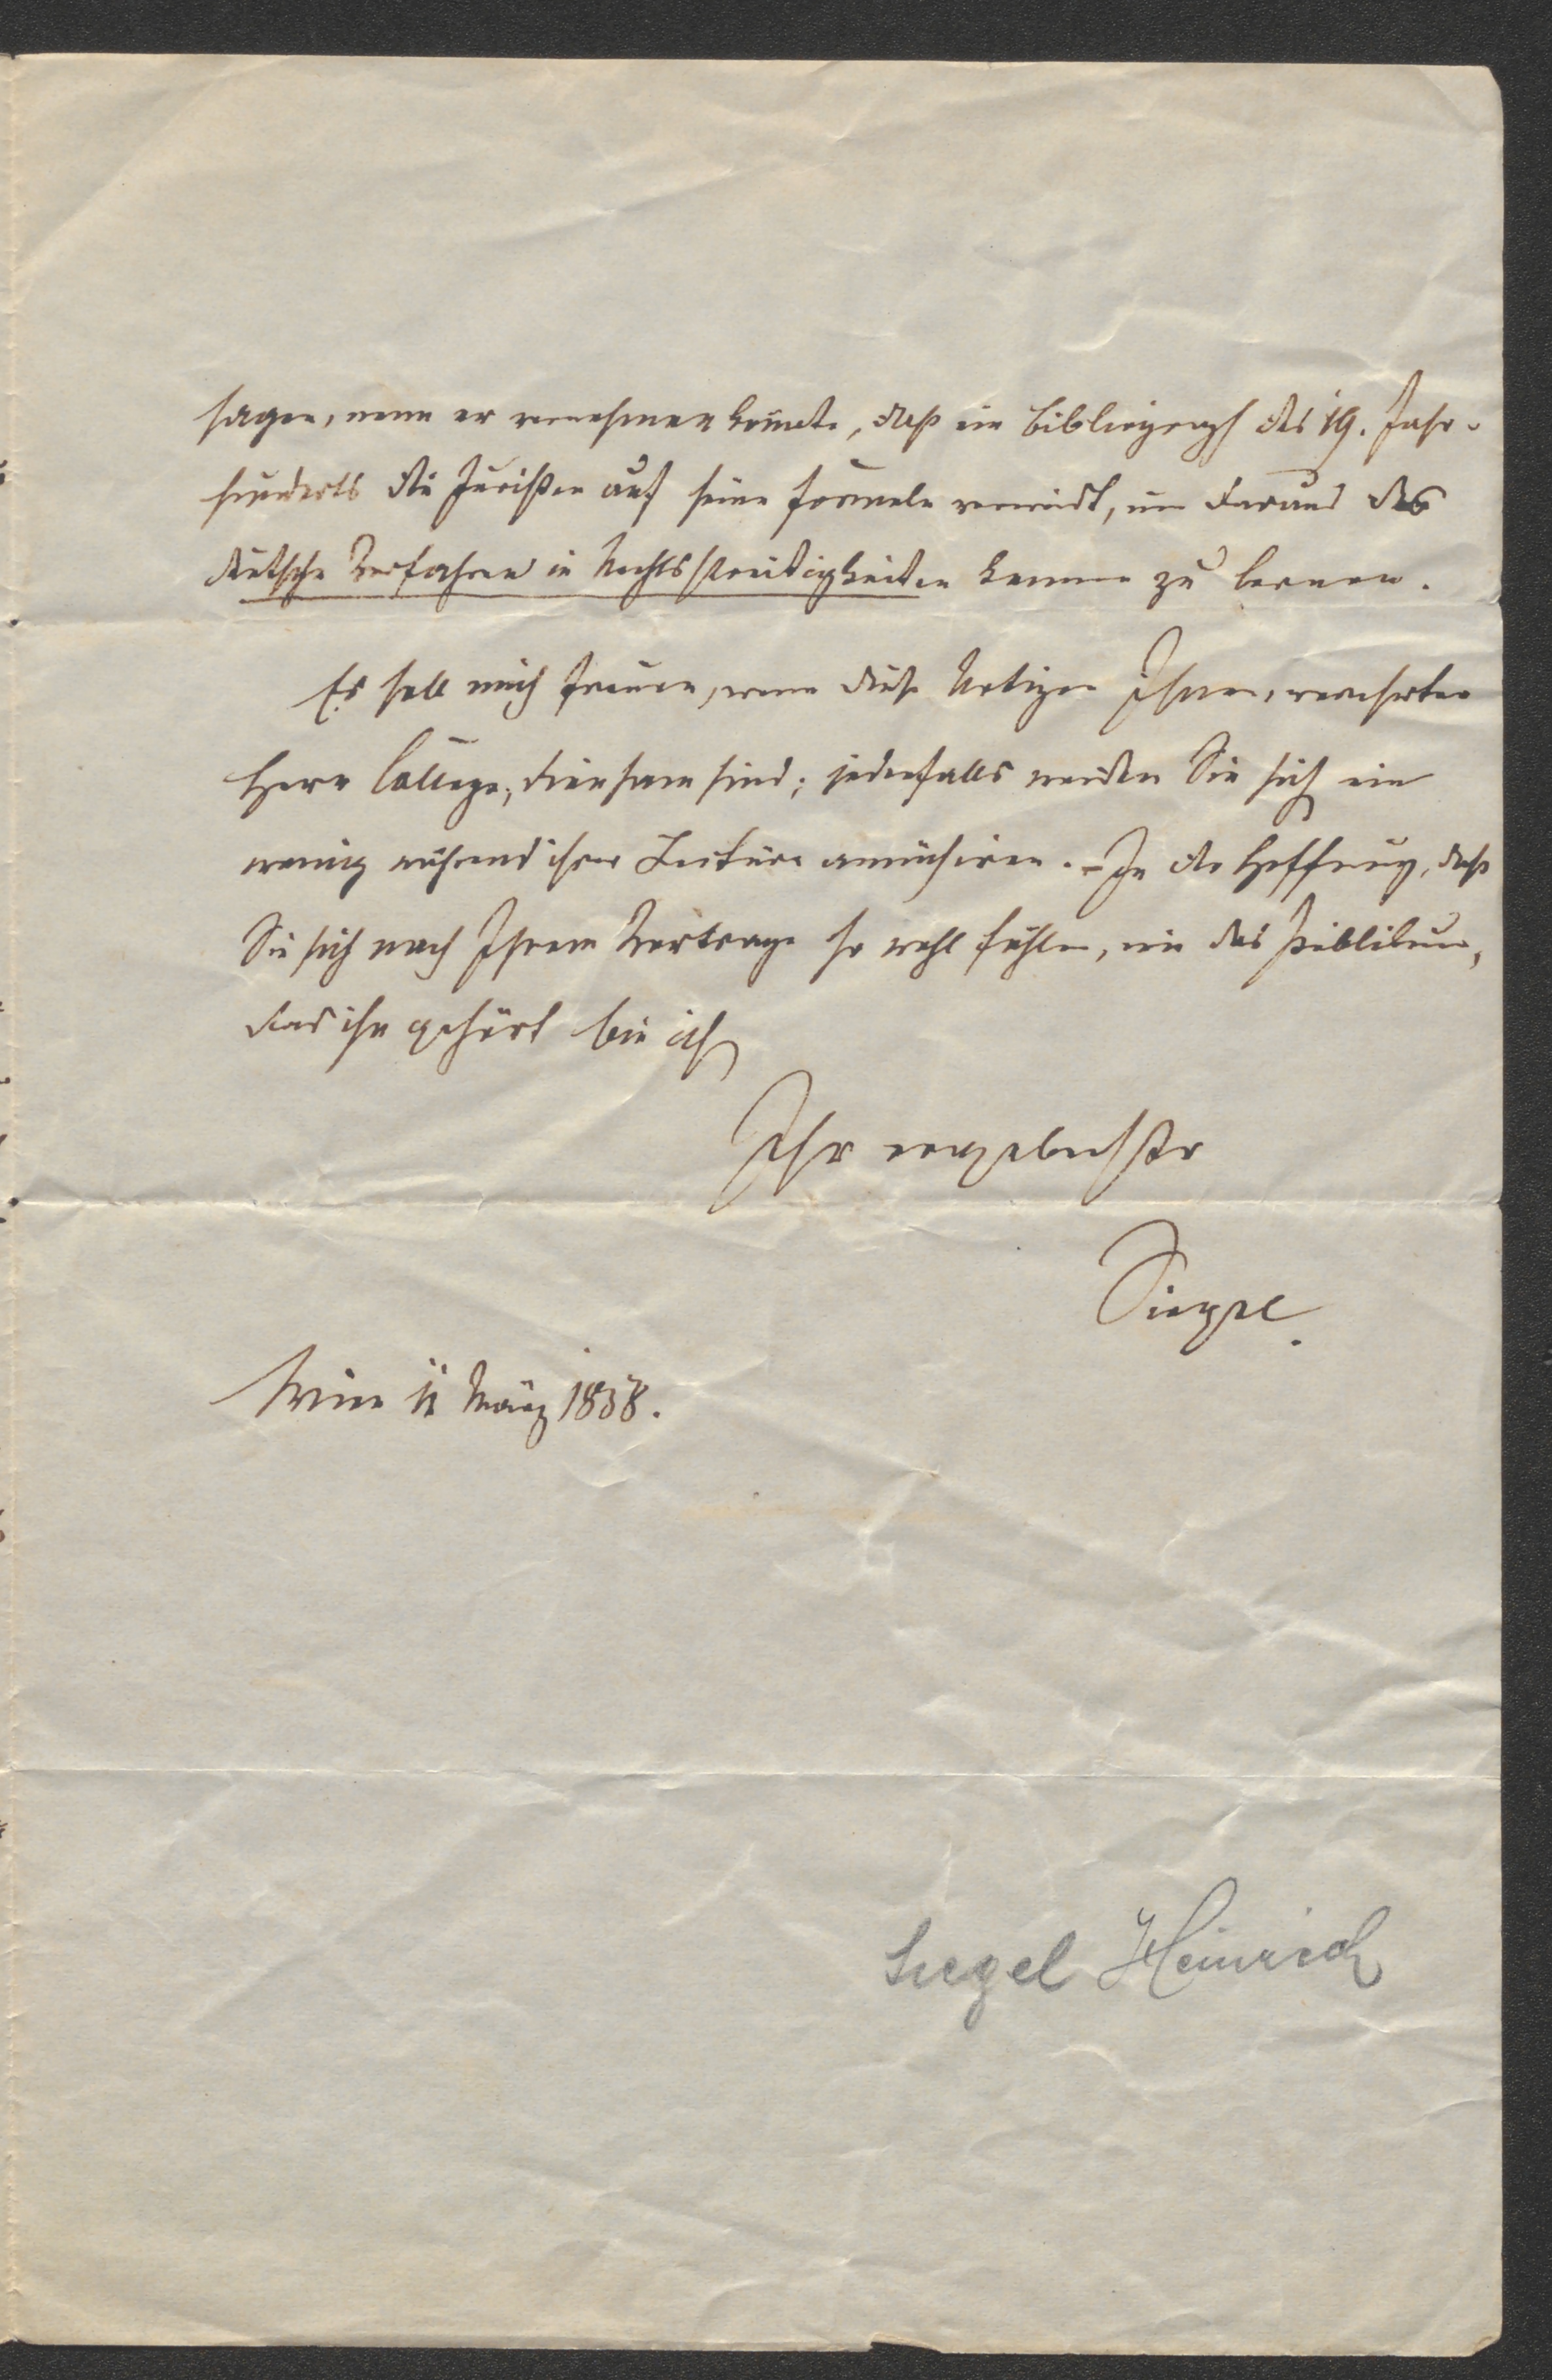 sagen, wenn er vernehmen könnte, daß ein Bibliograph des 19. Jahr-
hunderts die Juristen auf seine Formeln verweist, um daraus das
deutsche Verfahren in Rechtsstreitigkeiten kennen zu lernen.
Es soll mich freuen, wenn diese Notizen Ihnen, verehrter
Herr College, diensam sind; jedenfalls werden Sie sich ein
wenig während ihrer Lectüre amüsiren. – In der Hoffnung, daß
Sie sich nach Ihrem Vortrage so wohl fühlen, wie das Publikum,
das ihn gehört bin ich
Ihr ergebenster
Siegel.
Wien 11 März 1858.
Siegel Heinrich